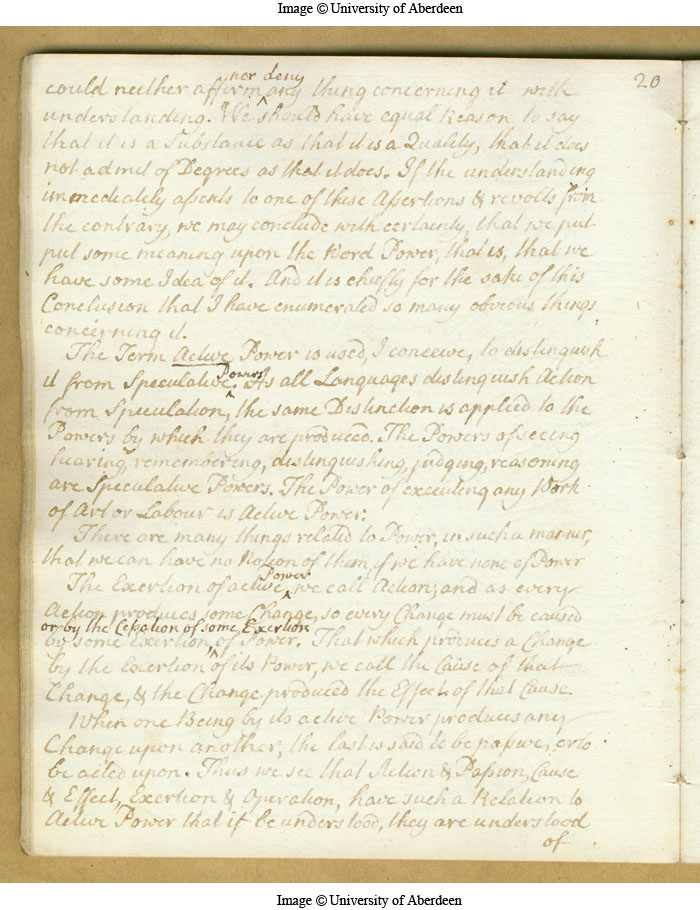 Image © University of Aberdeen
20
could neither affirm nor deny any thing concerning it with
understanding. We should have equal Reason to say
that it is a Substance as that it is a Quality, that it does
not admit of Degrees as that it does. If the understanding
immediately assents to one of these Assertions & revolts from
the contrary, we may conclude with certainty, that we put
put some meaning upon the Word Power, that is, that we
have some Idea of it. And it is chiefly for the sake of this
Conclusion that I have enumerated so many obvious things
concerning it.
The Term Active Power is used, I conceive, to distinguish
it from Speculative Powers. As all Languages distinguish Action
from Speculation, the same Distinction is applied to the
Powers by which they are produced. The Powers of seeing
hearing, remembering, distinguishing, judging, reasoning
are Speculative Powers. The Power of executing any Work
of Art or Labour is Active Power.
There are many things related to Power, in such a manner,
that we can have no Notion of them, if we have none of Power
The Exertion of active Power we call Action; and as every
Action produces some Change, so every Change must be caused
by some Exertion, or by the Cessation of some Exertion of Power. That which produces a Change
by the Exertion of its Power, we call the Cause of that
Change, & the Change produced the Effect of that Cause.
When one Being by its active Power produces any
Change upon another, the last is said to be passive, or to
be acted upon. Thus we see that Action & Passion, Cause
& Effect, Exertion & Operation, have such a Relation to
Active Power that if it be understood, they are understood
of
Image © University of Aberdeen